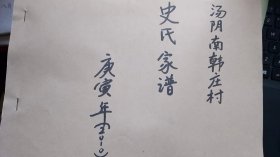 汤阴南韩庄村
史氏家谱
庚寅年(2010)